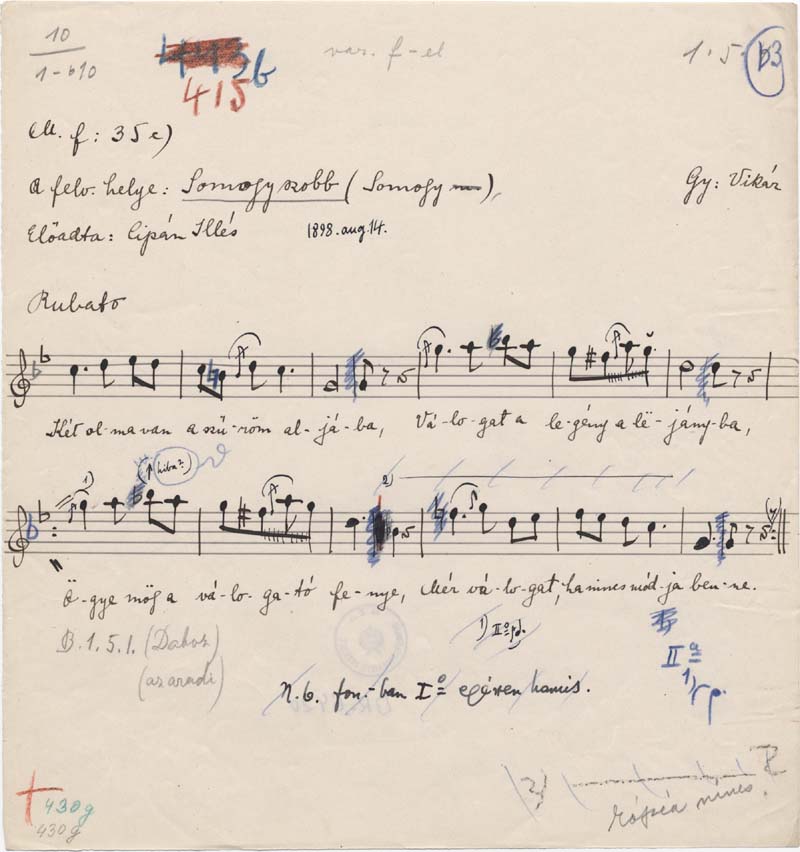 10
1-b10
415
b
var. f-el
1.5. b3
M. f: 35 c)
A felv. helye: Somogyszobb (Somogy m.),
Gy: Vikár
Előadta: Cipán Illés
1898. aug. 14.
Rubato
Két ol-ma van a szű-röm al-já-ba, Vá-lo-gat a le-gény a lë-jány-ba,
1)
(hiba?)
2)
Ö-gye mög a vá-lo-ga-tó fe-nye, Mér vá-lo-gat, ha nincs mód-ja ben-ne.
B.1.5.1.
(az aradi)
1) IIº p.
IIº
1) r p.
N.b. fon.-ban Iº egészen hamis.
2)
nincs
430g
430g